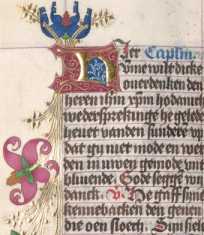 Hier Caplm.
Ume wilt dicke
ouerdenken den
heren ihm xpm hodanich
wedersprekinge he gelede
heuet vanden sundere vp
dat gy niet mode en wer
den in uwen gemode vnde
bliuende. Gode segge wi
danck. V. He gaff sijn
kennebacken den genen
die oen sloech. Ein siel